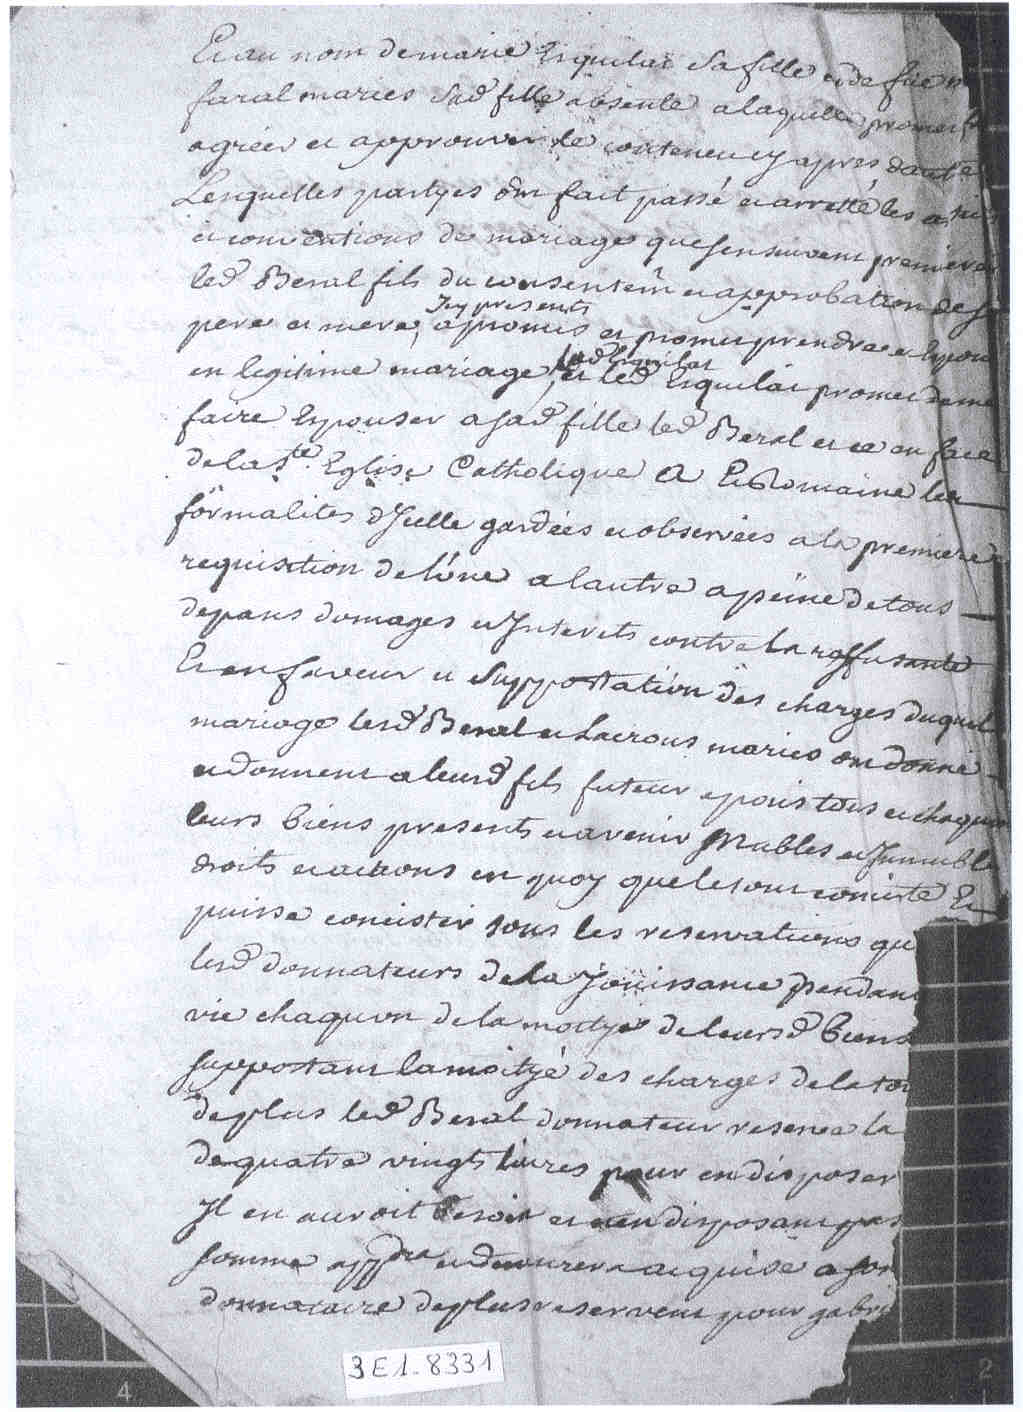 Et au nom de marie Esquilat Sa fille et de feue
faral maries Sad fille absente a laquelle promet
agréer et approuver le conteneu cy apres dautre
Lesquelles partyes ont fait passé et arretté les
et conventions de mariage que sensuivent premierem
led Beral fils du consentem̃t et approbation de
pere et mere, Icy presents a promis et promet prendre et Epou
en legitime mariage lad Esquilat et led Esquilat promet de
faire Epouser a sad fille led Beral et ce en face
de la Ste Eglise Catholique A Et Romaine les
formalites dIcelle gardées et observées a la premiere
requisition de lúne a lautre a peine de tous
depans domages et Interets contre la reffusante
Et en faveur et Supportation des charges duquel
mariage lesd Beral et Lacrous maries ont donné
et donnent a leurd fils futeur epous tous et chaquns
leurs biens presents et avenir Mubles et Immuble
droits et actions en quoy que le tout conciste Et
puisse concister sous les reservations que
lesd donnateurs de la Jouissance pendant
vie chaqun de la moitye de leursd biens
supportant la moitye des charges de la
de plus led Beral donnateur reserve la
de quatre vingts livres pour en disposer
Il en auroit besoin et nen disposant pas
somme appdra et demurera acquise a son
donnataire de plus reservent pour gabri
3E1-8331
4
2